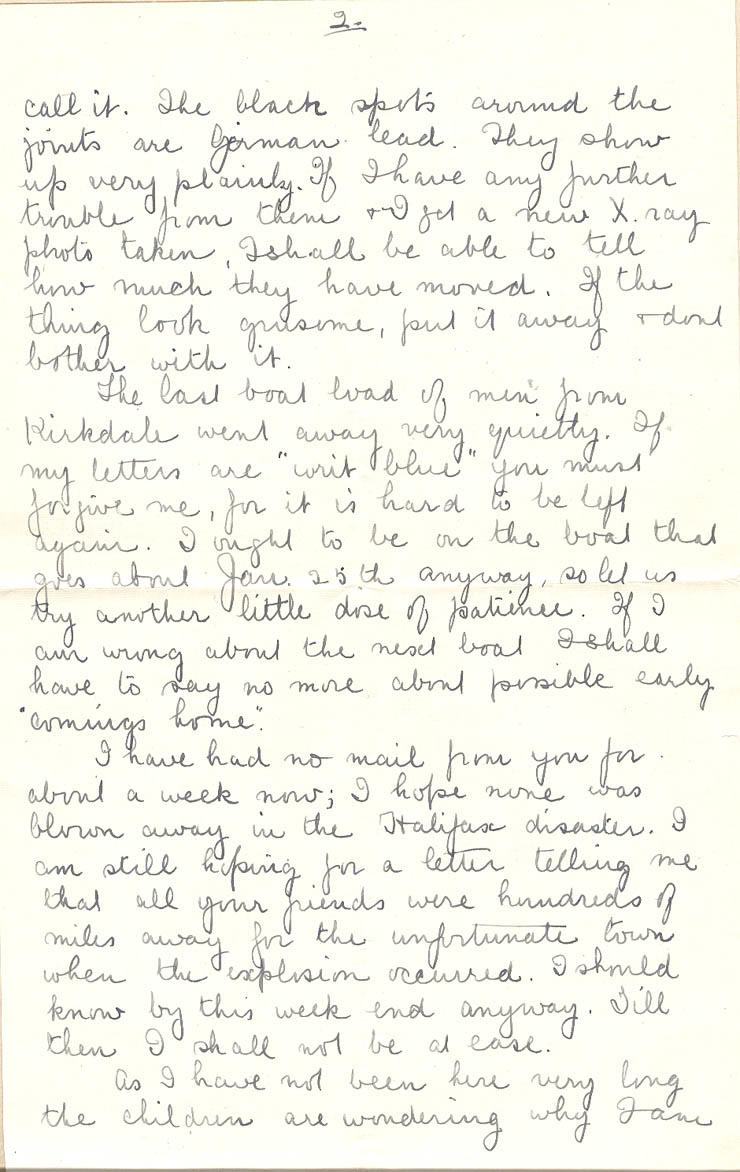 2.
call it. The black spots around the
joints are German lead. They show
up very plainly. If I have any further
trouble from them & I get a new X. ray
photo taken, I shall be able to tell
how much they have moved. If the
thing look grusome, put it away & dont
bother with it.
The last boat load of men from
Kirkdale went away very quietly. If
my letters are "writ blue" you must
forgive me, for it is hard to be left
again. I ought to be on the boat that
goes about Jan. 25th anyway, so let us
try another little dose of patience. If I
am wrong about the next boat I shall
have to say no more about possible early
"comings home".
I have had no mail from you for
about a week now; I hope none was
blown away in the Halifax disaster. I
am still hoping for a letter telling me
that all your friends were hundreds of
miles away for the unfortunate town
when the explosion occurred. I should
know by this week end anyway. Till
then I shall not be at ease.
As I have not been here very long
the children are wondering why I am